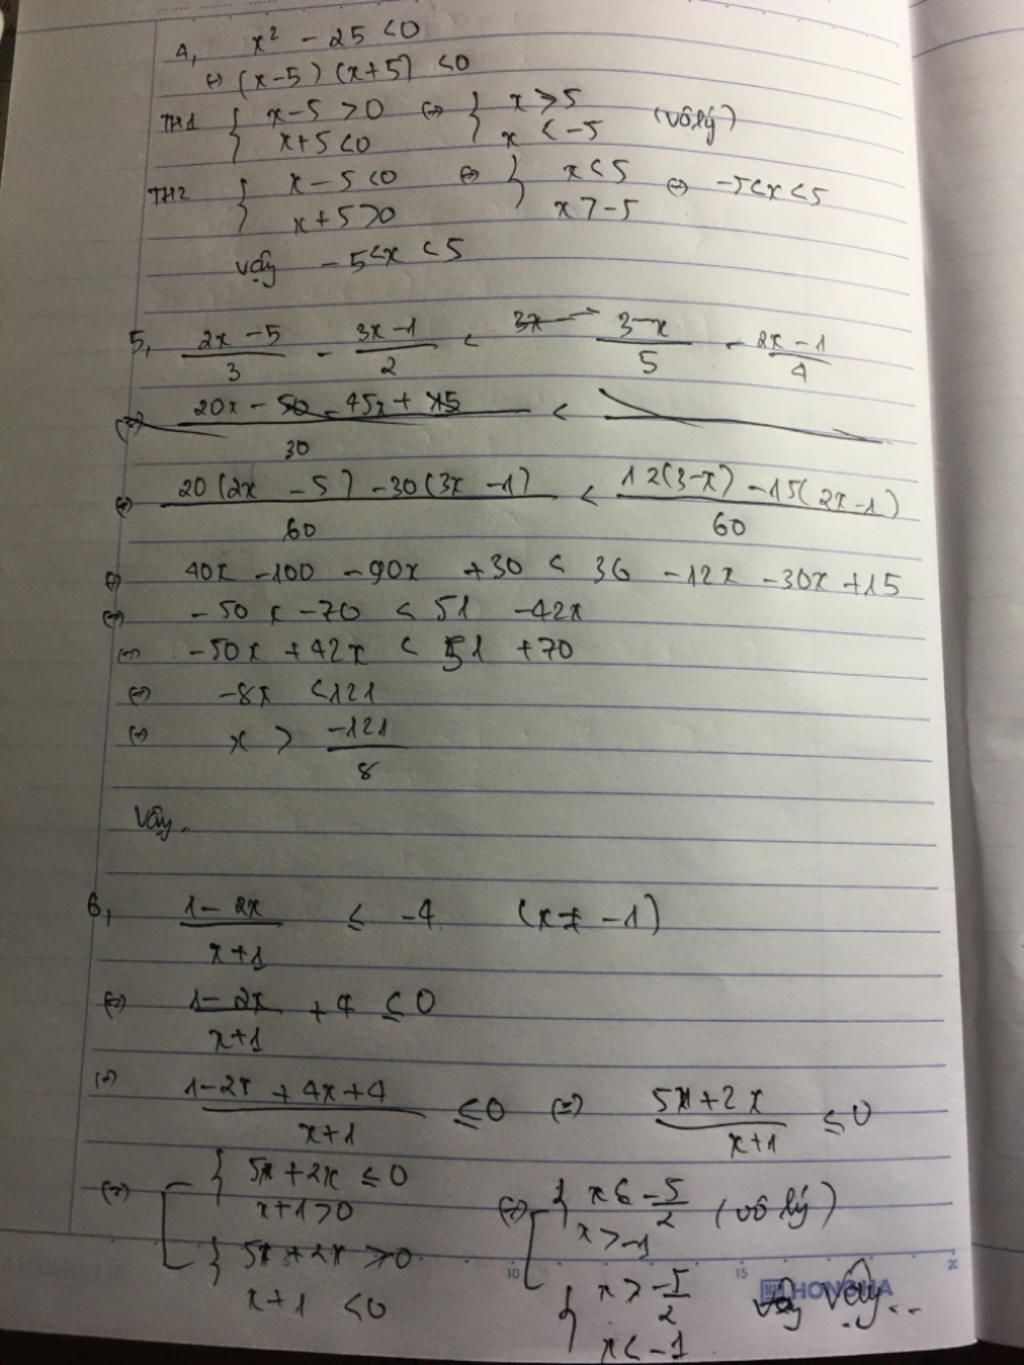 4, x² - 25 < 0
⇔ (x-5) (x+5) < 0
TH1 { x-5 > 0 ⇔ { x > 5 (vô lý)
x+5 < 0 x < -5
TH2 { x - 5 < 0 ⇔ { x < 5 ⇔ -5 < x < 5
x + 5 > 0 x > -5
vậy - 5 < x < 5
5, (2x - 5)/3 - (3x - 1)/2 < (3-x)/5 - (2x - 1)/4
⇔ (20(2x - 5) - 30(3x - 1))/60 < (12(3-x) - 15(2x-1))/60
⇔ 40x - 100 - 90x + 30 < 36 - 12x - 30x + 15
⇔ - 50x - 70 < 51 - 42x
⇔ - 50x + 42x < 51 + 70
⇔ -8x < 121
⇔ x > -121/8
Vậy.
6, (1 - 2x)/(x+1) ≤ -4 (x ≠ -1)
⇔ (1 - 2x)/(x+1) + 4 ≤ 0
⇔ (1-2x + 4x+4)/(x+1) ≤ 0 ⇔ (5+2x)/(x+1) ≤ 0
⇔ [ { 5+2x ≤ 0 ⇔ [ { x ≤ -5/2 (vô lý)
x+1 > 0 x > -1
{ 5+2x ≥ 0 { x ≥ -5/2 Vậy...
x+1 < 0 x < -1
10 15 20
HONG HA